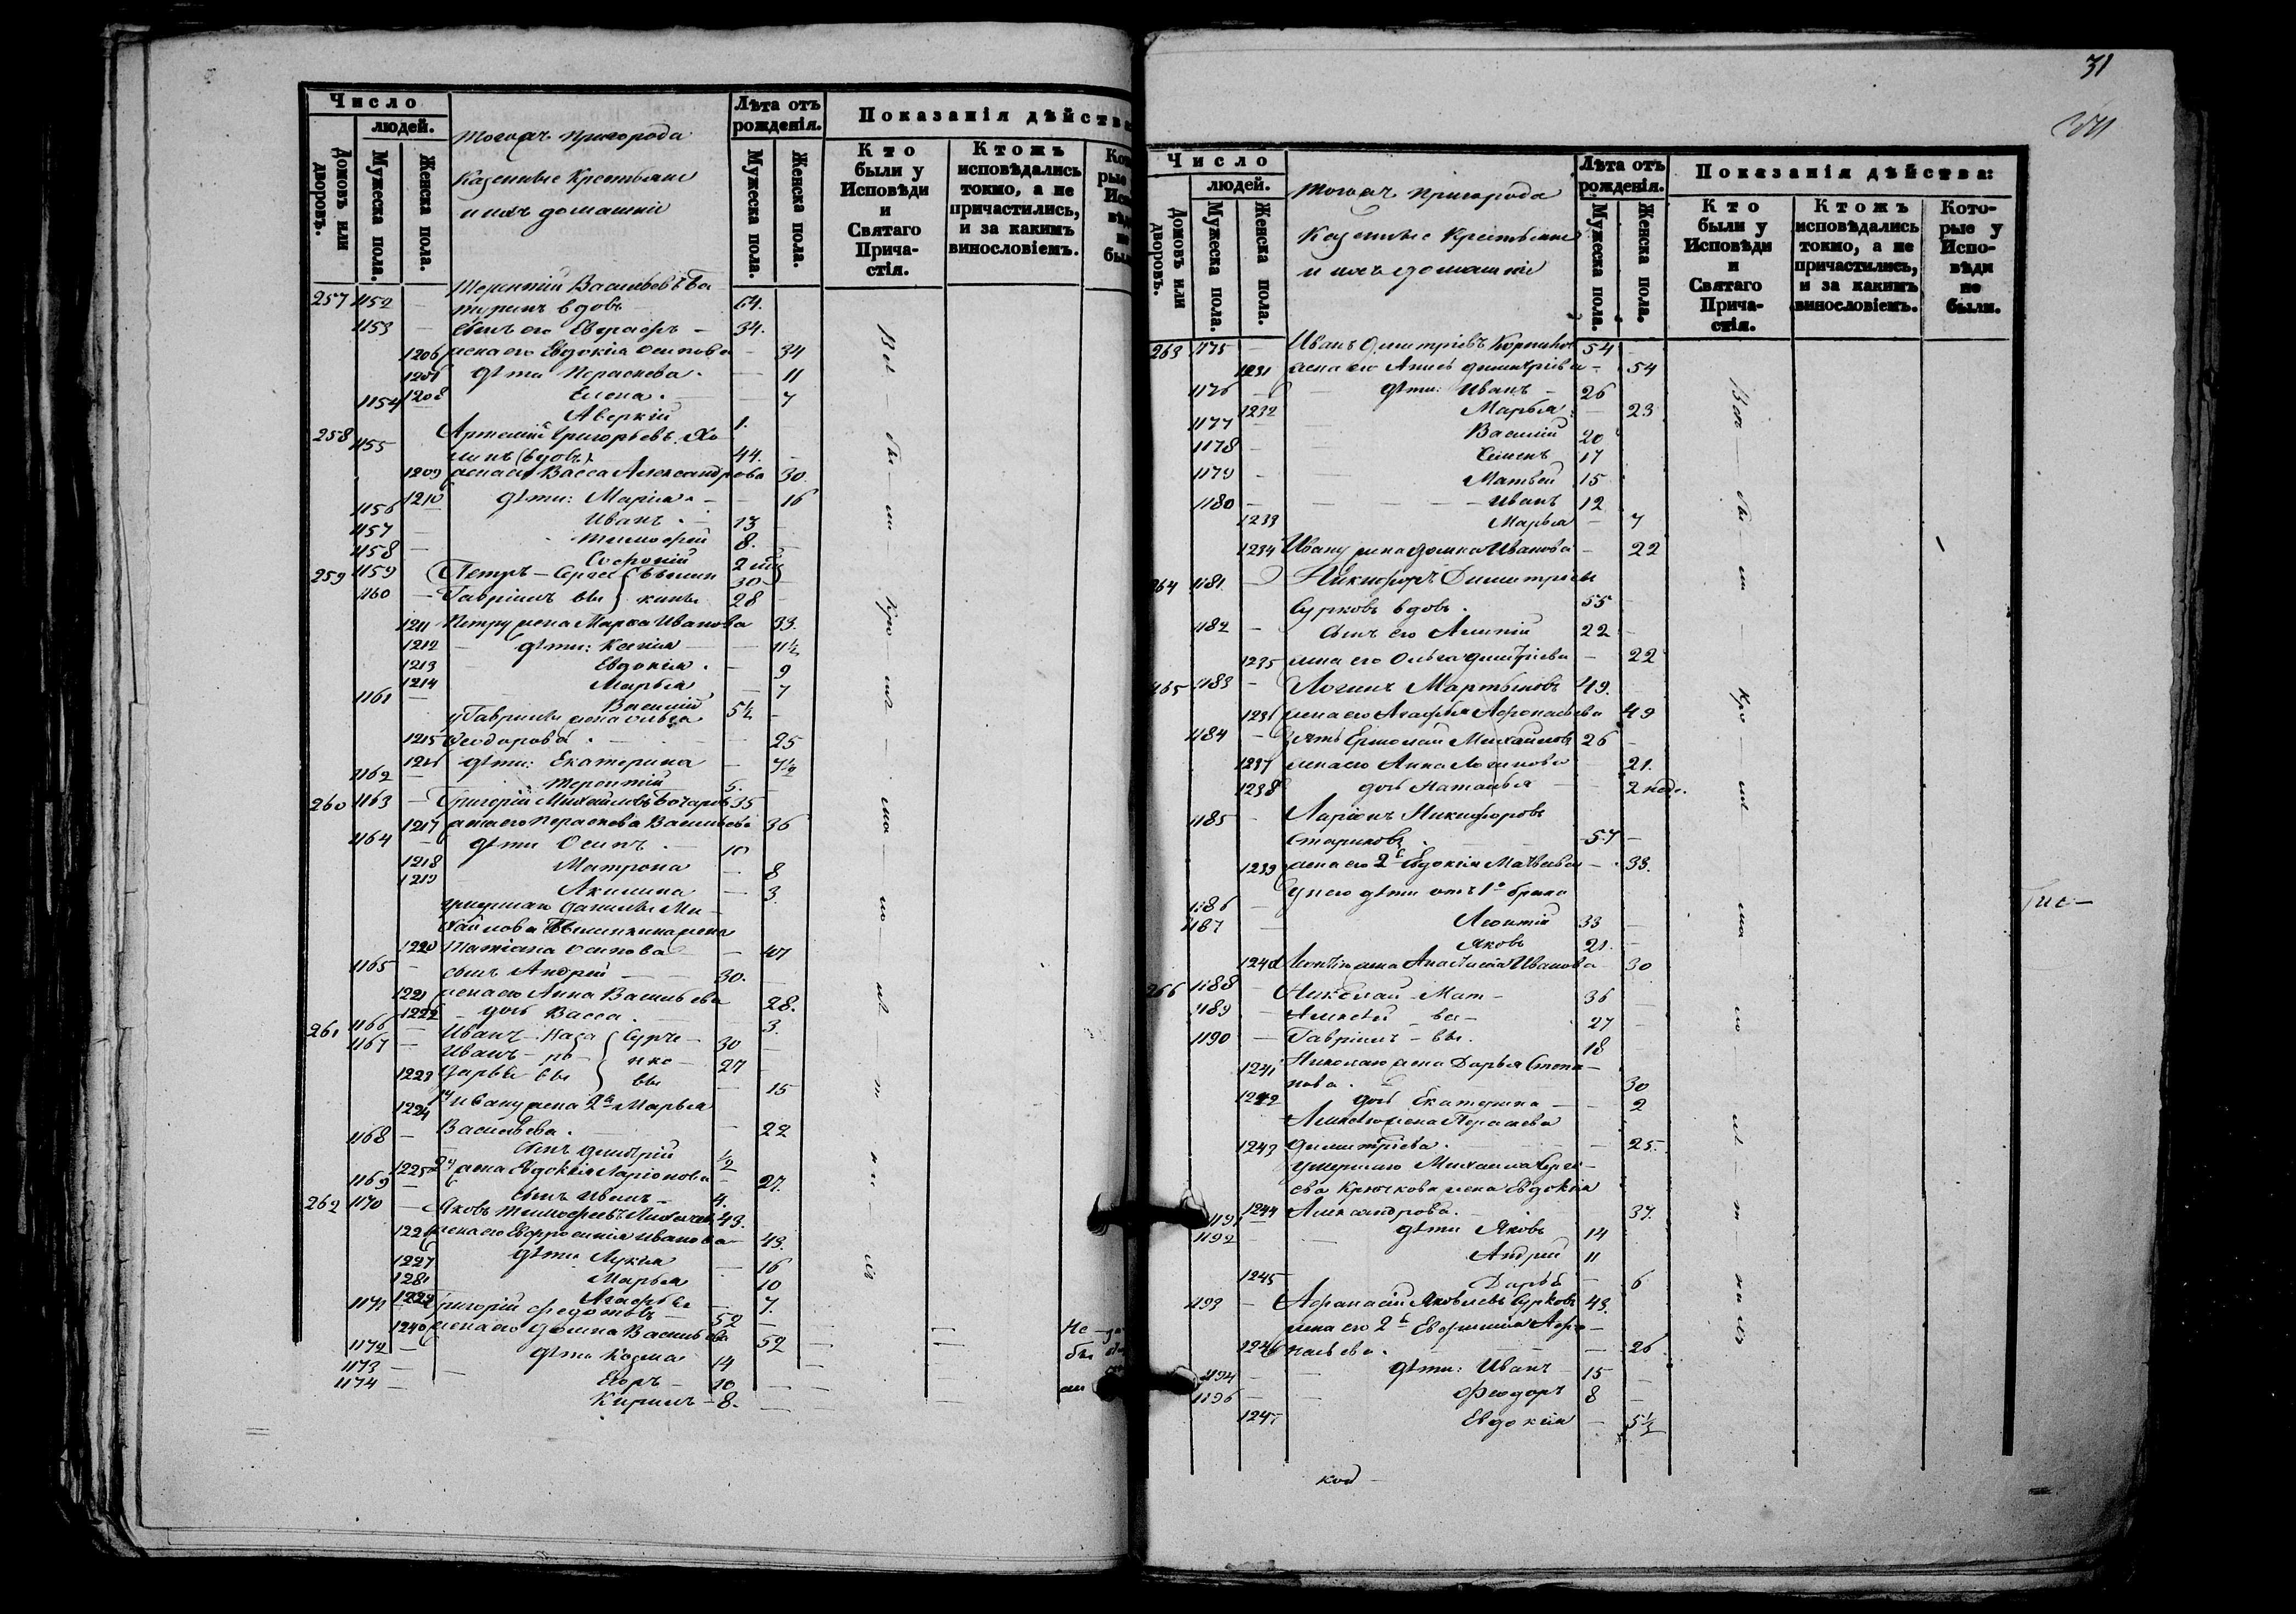 Число
людей.
Домовъ или дворовъ.
Мужеска пола.
Женска пола.
пригорода
Казенные Крестьяне
и ихъ домашніе
Лѣта отъ
рожденія.
Мужеска пола.
Женска пола.
Показанія дѣйства
Кто
были у
Исповѣди
и
Святаго
Прича-
стія.
Ктожъ
исповѣдались
токмо, а не
причастились,
и за какимъ
винословіемъ.
Терентій Васильевъ Ба
257 1152 — туринъ вдовъ 64.
1153 — сынъ его Евграфъ — 34.
1206 жена его Евдокія Осипова — 34
1207 дѣти Параскева. — 11
1208 Елена. — 7
1154 — Аверкій 1.
258 1155 Артемій Григорьевъ Хо
линъ (вдовъ) 44. —
1209 жена его Васса Александрова 30
1210 дѣти: Марія. — 16
1156 — Иванъ. — 13 —
1157 — Тимофей 8. —
1158 — Софроній 2
259 1159 Петръ — Сергее 30 —
1160 — Гавріилъ вы 28 —
1211 Петру жена Марѳа Иванова 33.
1212 — дѣти: Ксенія — 11½
1213 Евдокія. — 9
1214 Марья — 7
1161 — Василій 5½ —
у Гавріила жена Ольга
1215 Ѳеодорова. — 25
1216 дѣти: Екатерина — 7½
1162 — Терентій 5. —
260 1163 — Григорій Михайловъ Бочаровъ 35
1217 жена его Параскева Васильева 36
1164 — дѣти Осипъ. — 10
1218 Матрона — 8
1219 Акилина — 3.
умершаго Данилы Ми-
хайлова жена
1220 Татіана Осипова — 47
1165 — сынъ Андрей — 30. —
1221 жена его Анна Васильева 28.
1222 — дочь Васса. — 3.
261 1166 — Иванъ — Наза Сурче — 30 —
1167 — Иванъ — ро — нко — 27 —
1223 Дарья вы вы — 15
1224 1му Ивану жена 2я Марья
Васильева. — 22
1168 — сынъ Дмитрій ½
1225 2му жена Евдокія Ларіонова — 27.
1169 — сынъ Иванъ — 4.
262 1170 — Яковъ Тимофеевъ 43.
1226 жена его Евфросинія Иванова 43.
1227 дѣти Лукія — 16
1228 Марья 10
1229 Агафья 7.
1171 — Григорій Федотовъ — 52 —
1240 жена его Домна Васильева 52 —
1172 — дѣти Козма 14 —
1173 — Егоръ — 10 —
1174 — Кирилъ — 8. —
Всѣ — бы — ли
31
Число
людей.
Домовъ или дворовъ.
Мужеска пола.
Женска пола.
пригорода
Казенные Крестьяне
и ихъ домашніе
Лѣта отъ
рожденія.
Мужеска пола.
Женска пола.
Показанія дѣйства:
Кто
были у
Исповѣди
и
Святаго
Прича-
стія.
Ктожъ
исповѣдались
токмо, а не
причастились,
и за какимъ
винословіемъ.
Кото-
рые у
Испо-
вѣди
не
были.
263 1175 — Иванъ Дмитріевъ 54 —
1231 жена его Дмитріева — 54
1176 — дѣти: Иванъ — 26
1232 Марья — 23
1177 Василій 20
1178 — Семенъ 17
1179 — Матвей 15
1180 — Иванъ 12
1233 Марья — 7
1234 Ивану жена Домна Иванова — 22
264 1181 — Никифоръ Димитріевъ
Сурковъ вдовъ. 55 —
1182 — сынъ его Алипій 22 —
1235 жена его Ольга Дмитріева — 22
265 1183 — Логинъ Мартыновъ 49.
1236 жена его Агафья Афонасьева 49
1184 — зять Ермолай Михайловъ 26 —
1237 жена его Анна Логинова 21.
1238 дочь Наталья — 2 нед.
1185 — Ларіонъ Никифоровъ
Стариковъ. 57 —
1239 жена его 2я Евдокія Матвеева — 33.
у него дѣти отъ 1го брака
1186 — Леонтій 33 —
1187 — Яковъ 21. —
1240 Леонтію жена Анастасія Иванова 30
266 1188 — Николай — Мат — 36 —
1189 — Алексей — ве — 27 —
1190 — Гавріилъ — вы. 18
1241 Николаю жена Дарья Степа —
нова. 30
1242 дочь Екатерина — 2
Алексею жена Параскева
1243 Димитріева. — 25.
умершаго Михаила Серге —
ева Крючкова жена Евдокія
1244 Александрова. — 37.
1191 — дѣти Яковъ 14
1192 — Андрей 11
1245 Дарья — 6
1193 — Афанасій Яковлевъ Сурковъ 43.
жена его 2я Евфимія Афо —
1246 насьева. — 26
1194 — дѣти: Иванъ 15 —
1196 — Феодоръ 8 —
1247 Евдокія — 5½
Всѣ — бы — ли